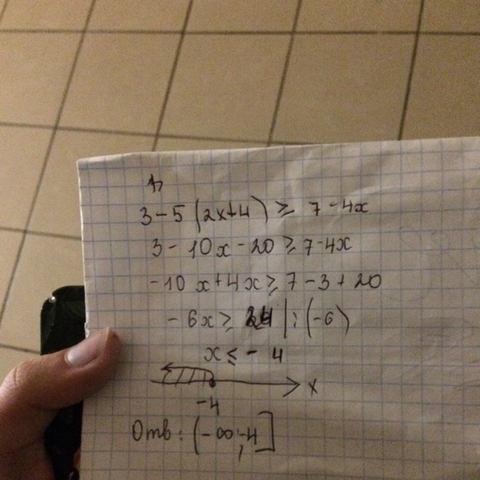 1)
3 - 5 (2x+4) ≥ 7 - 4x
3 - 10x - 20 ≥ 7 - 4x
-10x + 4x ≥ 7 - 3 + 20
-6x ≥ 24 | : (-6)
x ≤ -4
x
-4
Отв : (-∞; -4]